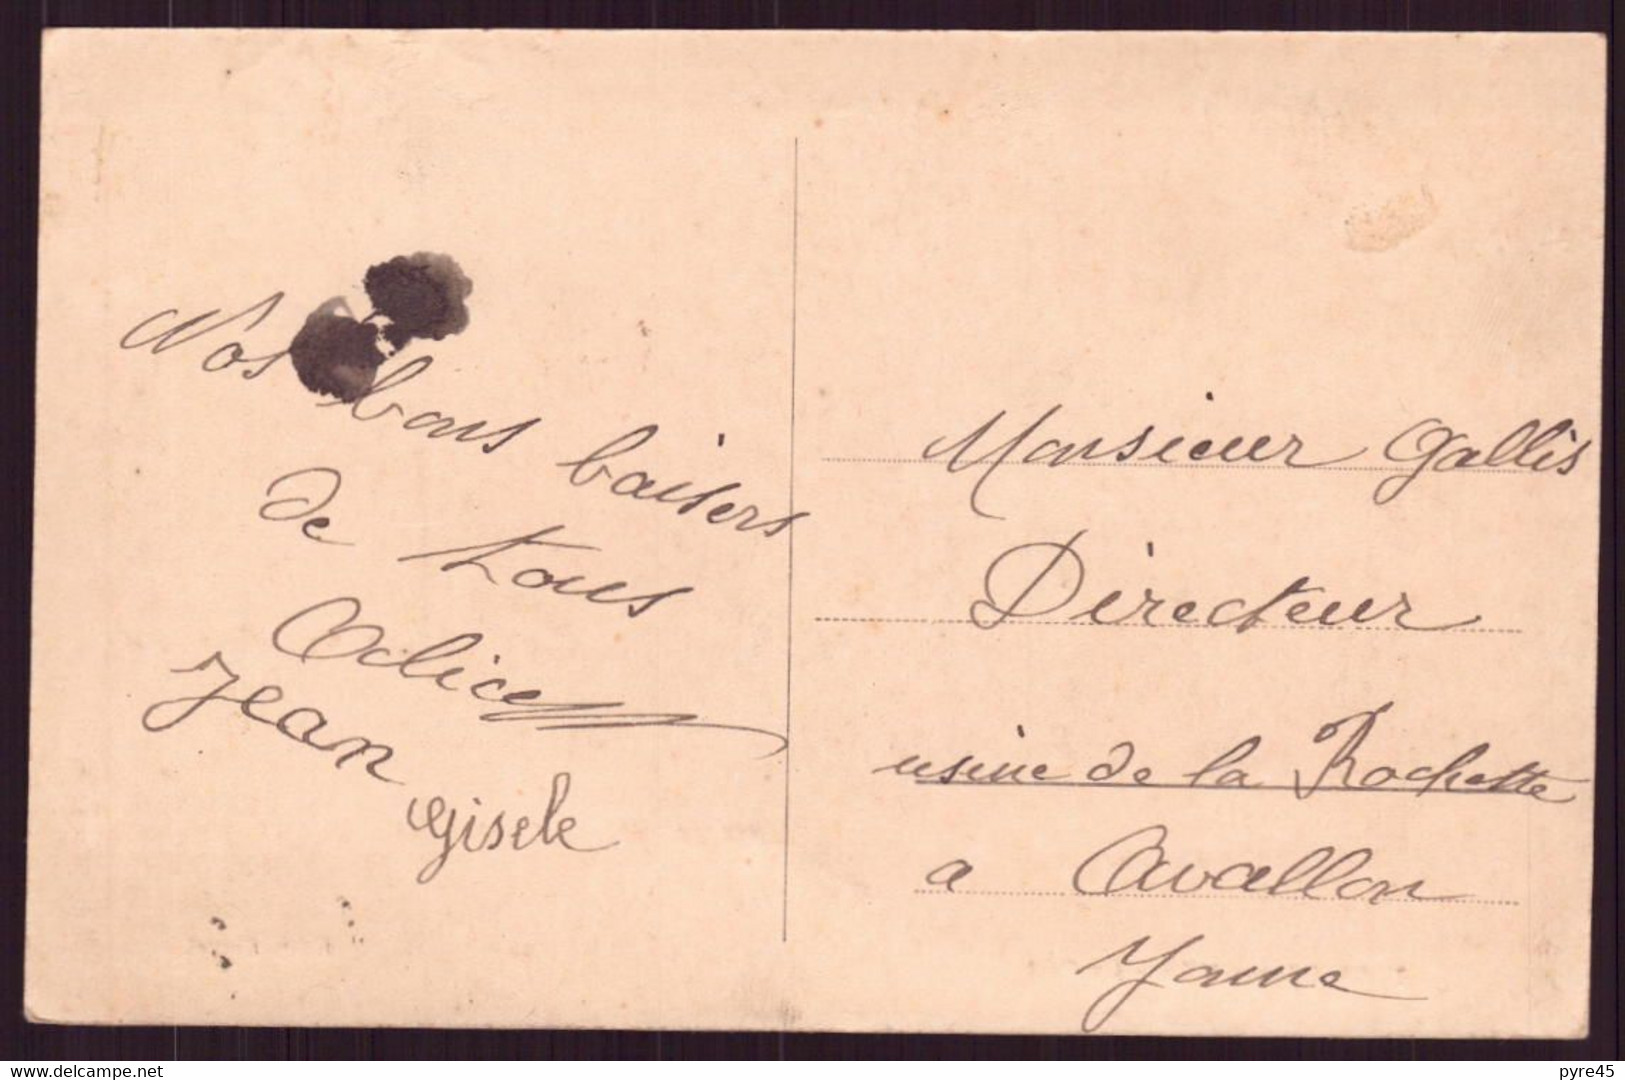 Nos bons baisers
de tous
Alice
Jean
Gisele
Monsieur Gallis
Directeur
usine de la Rochette
a Avallon
Yonne
www.delcampe.net
pyre45